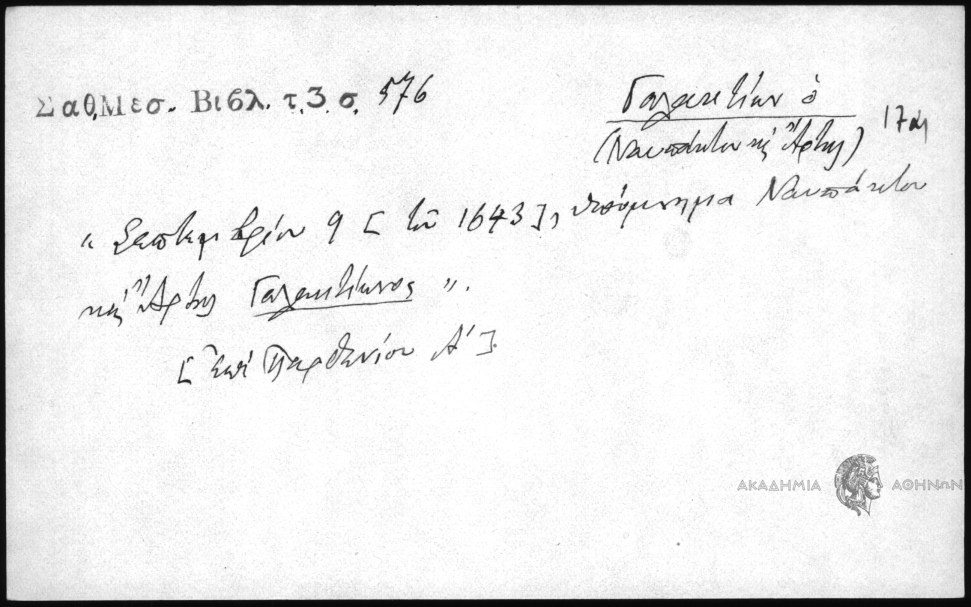 Σαθ. Μεσ. Βιβλ. τ. 3 σ. 576
Γαλακτίων ὁ
(Ναυπάκτου κ̀ Ἄρτης) 17 αι
« Σεπτεμβρίου 9 [τοῦ 1643], ὑπόμνημα Ναυπάκτου
κ̀ Ἄρτης Γαλακτίωνος ».
[Ἐπὶ Παρθενίου Α΄].
ΑΚΑΔΗΜΙΑ ΑΘΗΝΩΝ